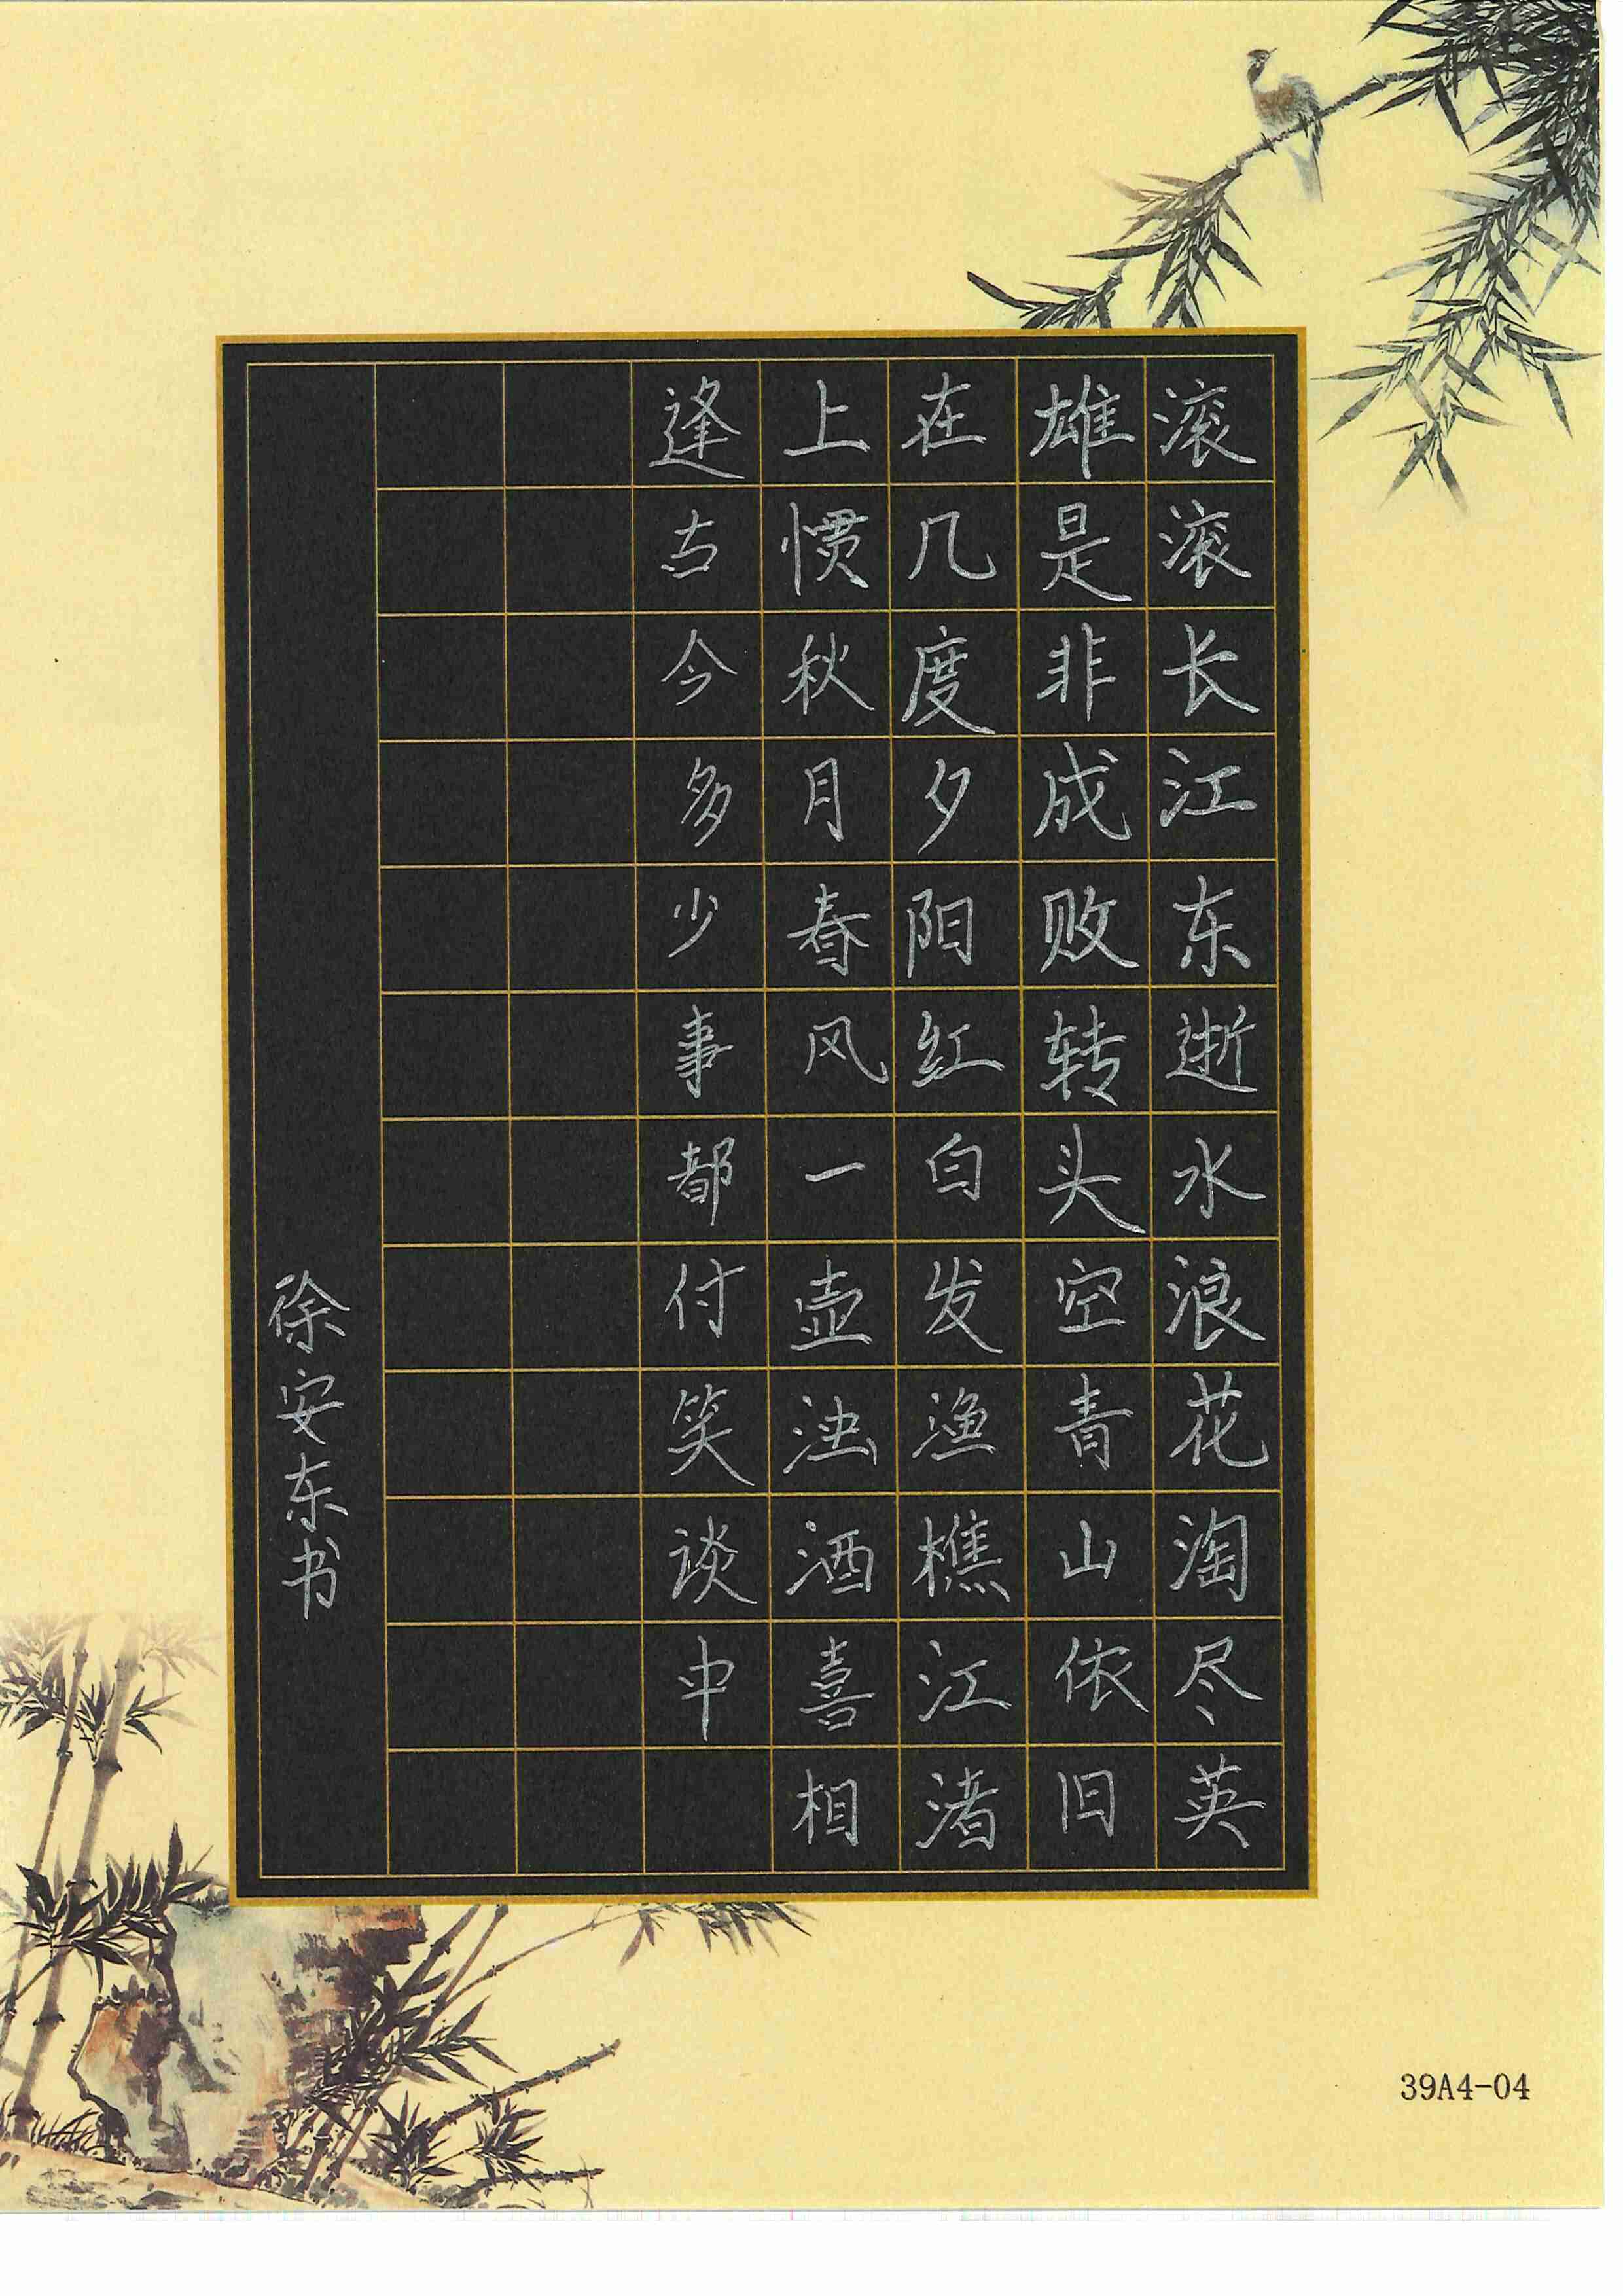 滚滚长江东逝水浪花淘尽英
雄是非成败转头空青山依旧
在几度夕阳红白发渔樵江渚
上惯秋月春风一壶浊酒喜相
逢古今多少事都付笑谈中
徐安东书
39A4-04